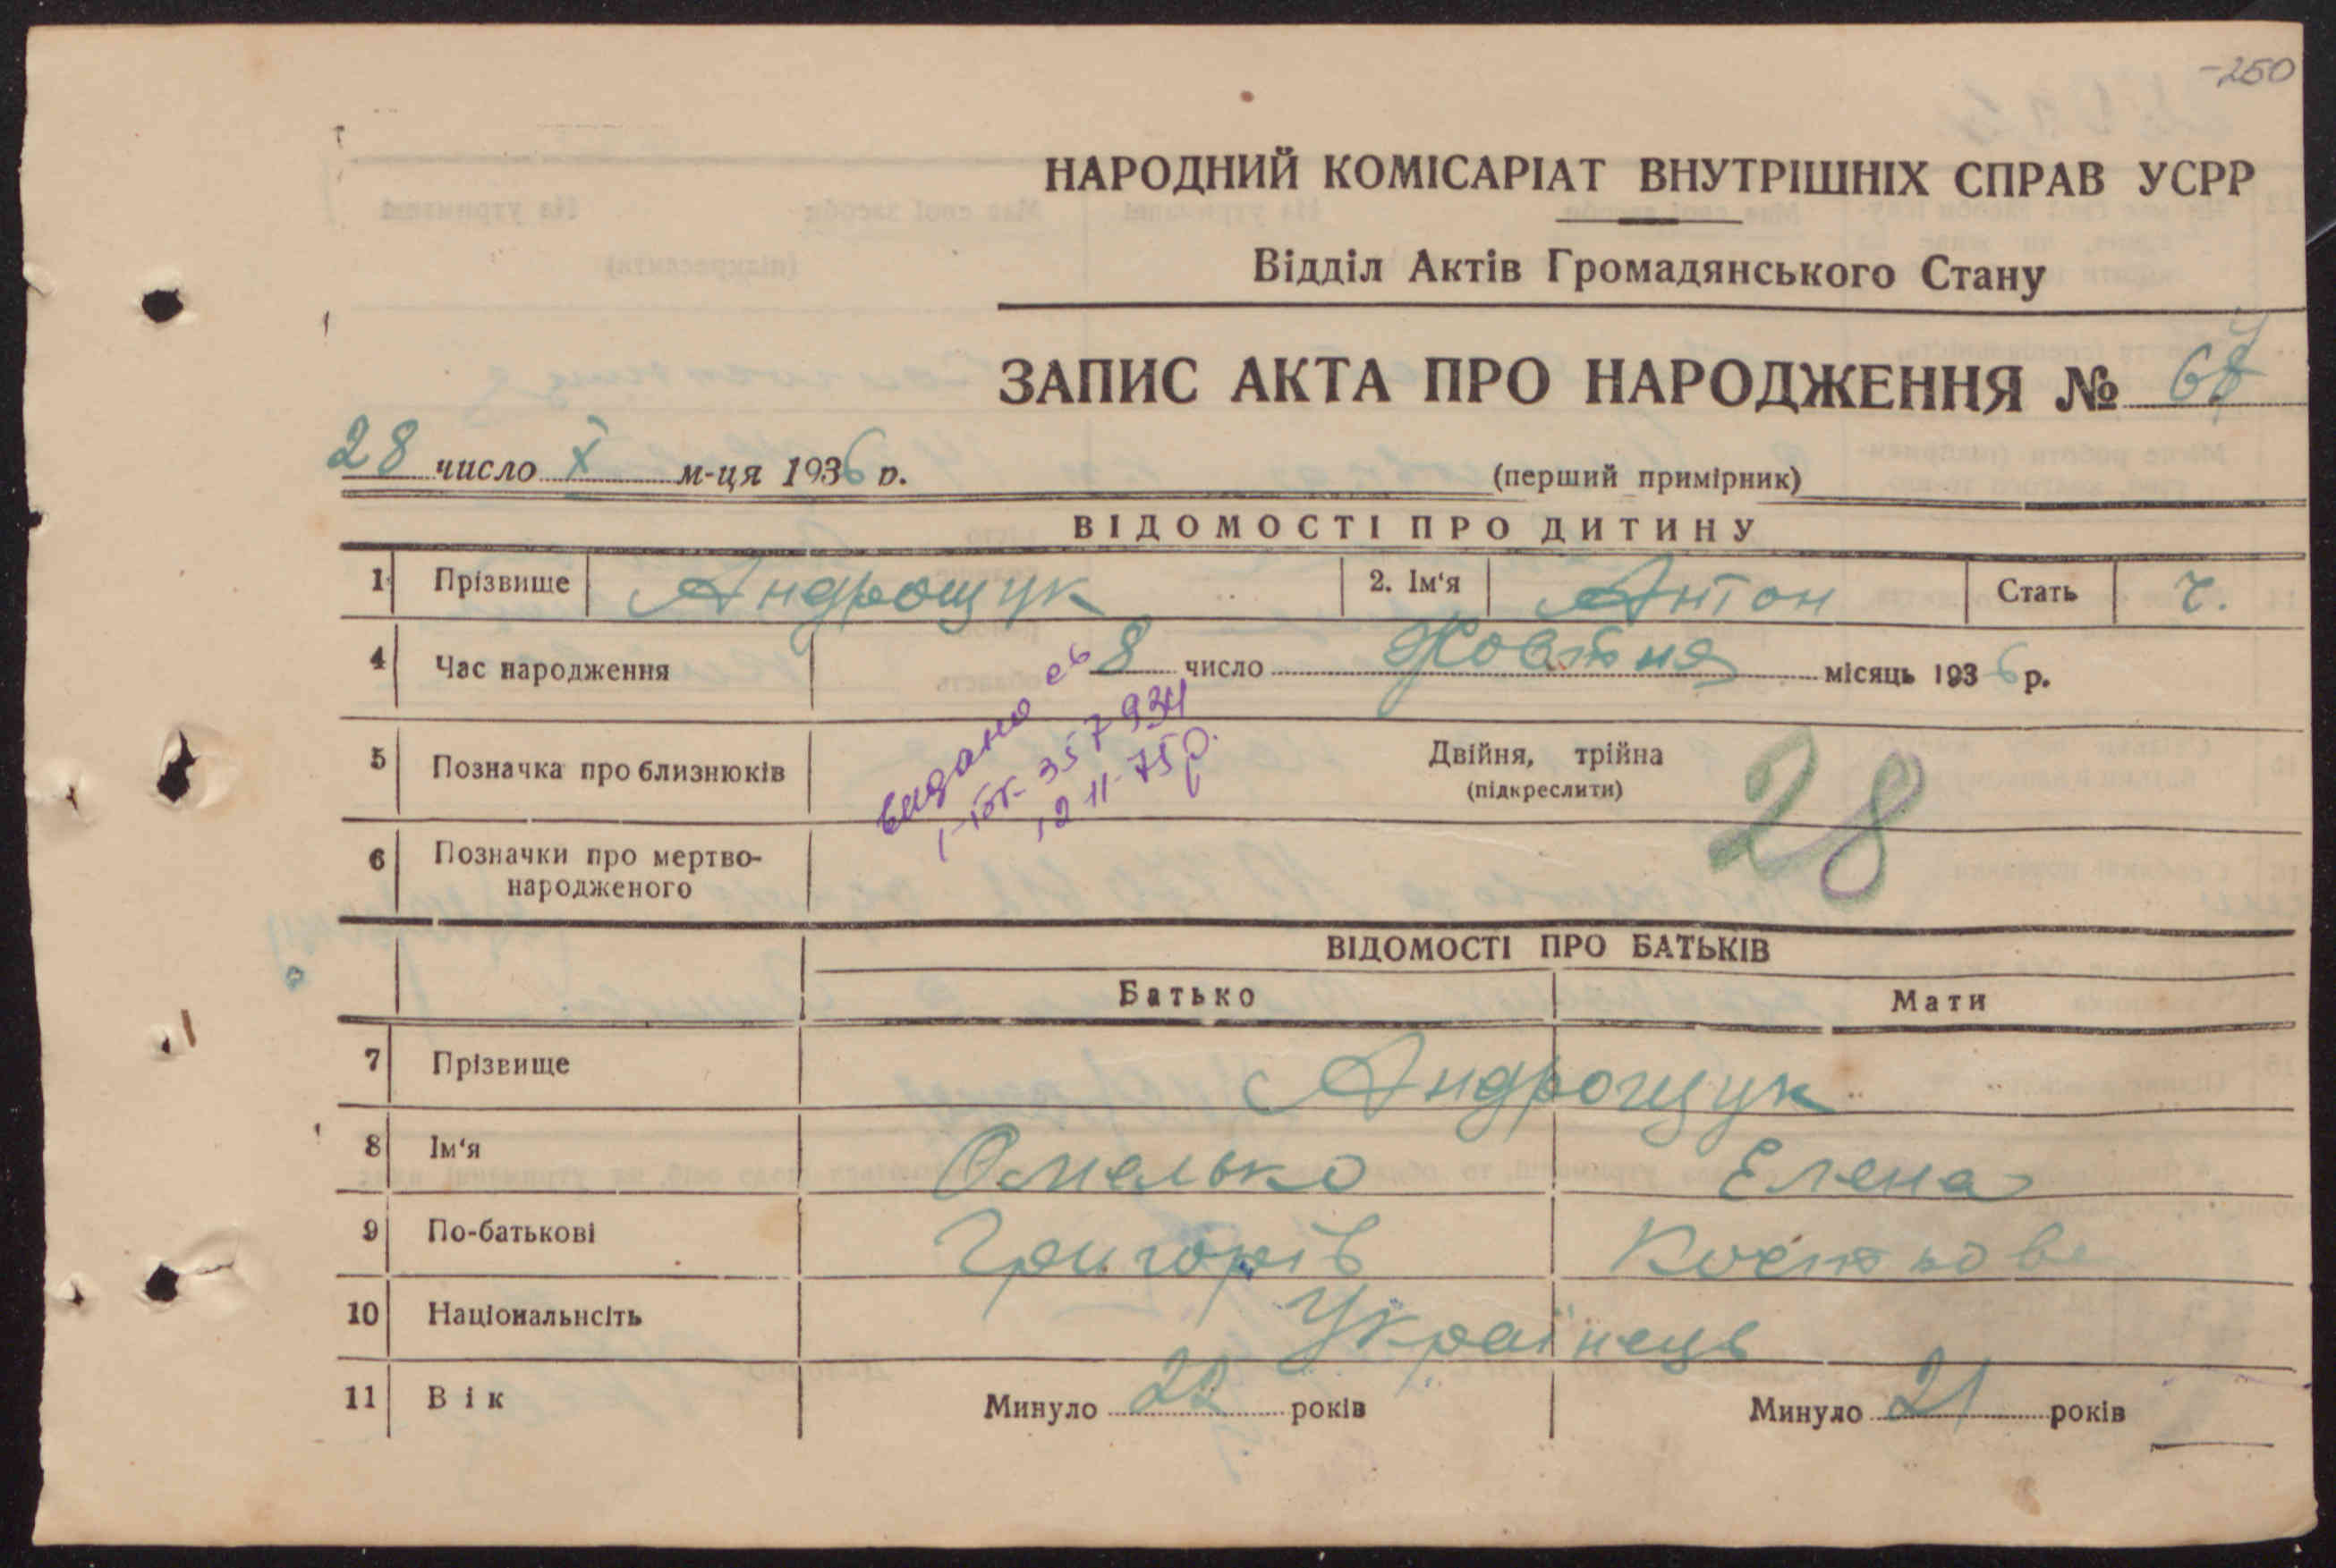 -250
НАРОДНИЙ КОМІСАРІАТ ВНУТРІШНІХ СПРАВ УСРР
Відділ Актів Громадянського Стану
ЗАПИС АКТА ПРО НАРОДЖЕННЯ №
28 число X м-ця 1936 р.
(перший примірник)
ВІДОМОСТІ ПРО ДИТИНУ
1 Прізвище Андрощук 2. Ім'я Антон Стать ч.
4 Час народження 8 число Жовтня місяць 1936 р.
видано св
357934
12-11-75р.
5 Позначка про близнюків Двійня, трійна
(підкреслити)
28
6 Позначки про мертво-
народженого
ВІДОМОСТІ ПРО БАТЬКІВ
Батько Мати
7 Прізвище Андрощук
8 Ім'я Омелько Елена
9 По-батькові Григорів
10 Національнсіть Українець
11 Вік Минуло 22 років Минуло 21 років